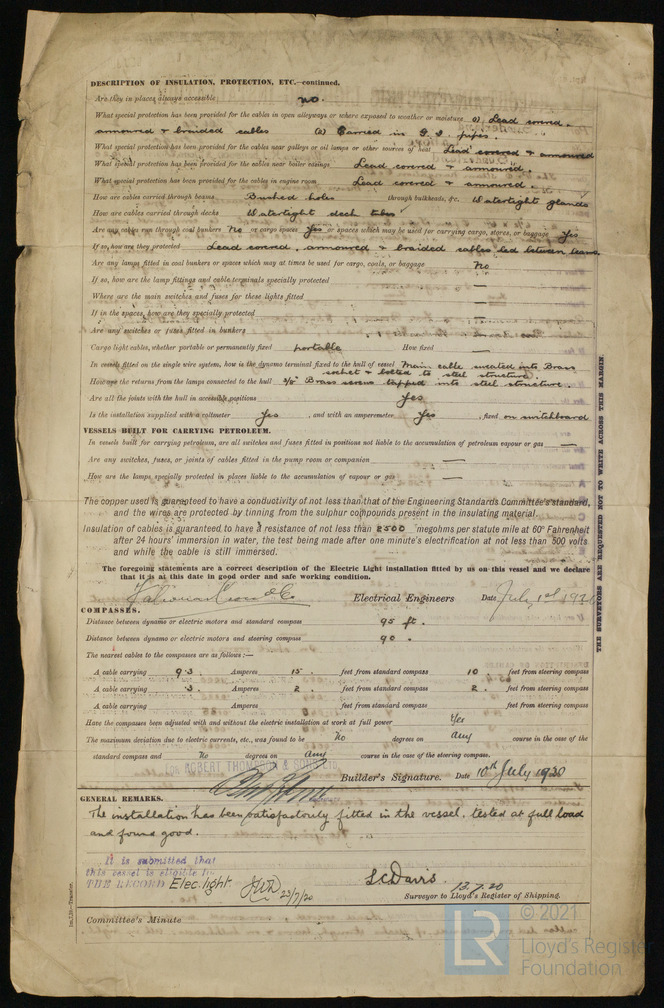 DESCRIPTION OF INSULATION, PROTECTION, ETC.—continued.
Are they in places always accessible no.
What special protection has been provided for the cables in open alleyways or where exposed to weather or moisture Lead covered,
armoured & braided cables Carried in G. I. pipes.
What special protection has been provided for the cables near galleys or oil lamps or other sources of heat Lead covered & armoured
What special protection has been provided for the cables near boiler casings Lead covered & armoured.
What special protection has been provided for the cables in engine room Lead covered & armoured.
How are cables carried through beams Bushed holes through bulkheads, &c. Watertight glands
How are cables carried through decks Watertight deck tubes
Are any cables run through coal bunkers No or cargo spaces Yes or spaces which may be used for carrying cargo, stores, or baggage Yes
If so, how are they protected Lead covered, armoured & braided cables led between beams.
Are any lamps fitted in coal bunkers or spaces which may at times be used for cargo, coals, or baggage No
If so, how are the lamp fittings and cable terminals specially protected —
Where are the main switches and fuses for these lights fitted —
If in the spaces, how are they specially protected —
Are any switches or fuses fitted in bunkers
Cargo light cables, whether portable or permanently fixed portable How fixed —
In vessels fitted on the single wire system, how is the dynamo terminal fixed to the hull of vessel Main cable sweated into Brass
socket & bolted to steel structure.
How are the returns from the lamps connected to the hull 3/8" Brass screws tapped into steel structure.
Are all the joints with the hull in accessible positions Yes
Is the installation supplied with a voltmeter Yes , and with an amperemeter Yes , fixed on switchboard
VESSELS BUILT FOR CARRYING PETROLEUM.
In vessels built for carrying petroleum, are all switches and fuses fitted in positions not liable to the accumulation of petroleum vapour or gas —
Are any switches, fuses, or joints of cables fitted in the pump room or companion —
How are the lamps specially protected in places liable to the accumulation of vapour or gas —
The copper used is guaranteed to have a conductivity of not less than that of the Engineering Standards Committee's standard,
and the wires are protected by tinning from the sulphur compounds present in the insulating material.
Insulation of cables is guaranteed to have a resistance of not less than 2500 megohms per statute mile at 60° Fahrenheit
after 24 hours' immersion in water, the test being made after one minute's electrification at not less than 500 volts
and while the cable is still immersed.
The foregoing statements are a correct description of the Electric Light installation fitted by us on this vessel and we declare
that it is at this date in good order and safe working condition.
Electrical Engineers Date July 1st 1920
COMPASSES.
Distance between dynamo or electric motors and standard compass 95 ft.
Distance between dynamo or electric motors and steering compass 90 .
The nearest cables to the compasses are as follows:—
A cable carrying 9.3 Amperes 15 feet from standard compass 10 feet from steering compass
A cable carrying .3 Amperes 2 feet from standard compass 2 feet from steering compass
A cable carrying Amperes feet from standard compass feet from steering compass
Have the compasses been adjusted with and without the electric installation at work at full power Yes
The maximum deviation due to electric currents, etc., was found to be No degrees on any course in the case of the
standard compass and No degrees on any course in the case of the steering compass.
ROBERT THOMPSON & SONS LTD.
Builder's Signature. Date 10th July 1920
GENERAL REMARKS.
The installation has been satisfactorily fitted in the vessel, tested at full load
and found good.
It is submitted that
this vessel is eligible for
THE RECORD Elec. light. 23/7/20
L C Davis 13.7.20
Surveyor to Lloyd's Register of Shipping.
Committee's Minute
THE SURVEYORS ARE REQUESTED NOT TO WRITE ACROSS THIS MARGIN.
LR
© 2021
Lloyd's Register
Foundation